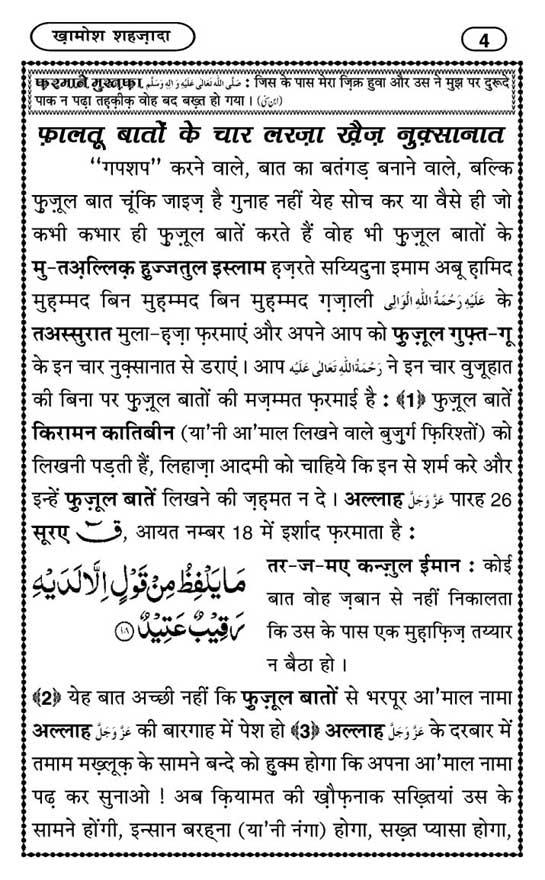 ख़ामोश शहज़ादा
4
फ़रमाने मुस्तफ़ा صَلَّى اللهُ تَعَالٰى عَلَيْهِ وَاٰلِهٖ وَسَلَّم : जिस के पास मेरा ज़िक्र हुवा और उस ने मुझ पर दुरूदे
पाक न पढ़ा तहक़ीक़ वोह बद बख़्त हो गया ।
फ़ालतू बातों के चार लरज़ा ख़ैज़ नुक़्सानात
“गपशप” करने वाले, बात का बतंगड़ बनाने वाले, बल्कि
फ़ुज़ूल बात चूंकि जाइज़ है गुनाह नहीं येह सोच कर या वैसे ही जो
कभी कभार ही फ़ुज़ूल बातें करते हैं वोह भी फ़ुज़ूल बातों के
मु-तअ़ल्लिक़ हुज्जतुल इस्लाम हज़रते सय्यिदुना इमाम अबू हामिद
मुहम्मद बिन मुहम्मद बिन मुहम्मद ग़ज़ाली عَلَيْهِ رَحْمَةُ اللهِ الْوَالِى के
तअस्सुरात मुला-हज़ा फ़रमाएं और अपने आप को फ़ुज़ूल गुफ़्त-गू
के इन चार नुक़्सानात से डराएं । आप رَحْمَةُ اللهِ تَعَالٰى عَلَيْه ने इन चार वुजूहात
की बिना पर फ़ुज़ूल बातों की मज़म्मत फ़रमाई है : ﴾1﴿ फ़ुज़ूल बातें
किरामन कातिबीन (या'नी आ'माल लिखने वाले बुज़ुर्ग फ़िरिश्तों) को
लिखनी पड़ती हैं, लिहाज़ा आदमी को चाहिये कि इन से शर्म करे और
इन्हें फ़ुज़ूल बातें लिखने की ज़हमत न दे । अल्लाह عَزَّوَجَلَّ पारह 26
सूरए قٓ, आयत नम्बर 18 में इर्शाद फ़रमाता है :
مَا يَلْفِظُ مِنْ قَوْلٍ اِلَّا لَدَيْهِ
رَقِيْبٌ عَتِيْدٌ ﴿١٨﴾
तर-ज-मए कन्ज़ुल ईमान : कोई
बात वोह ज़बान से नहीं निकालता
कि उस के पास एक मुहाफ़िज़ तय्यार
न बैठा हो ।
﴾2﴿ येह बात अच्छी नहीं कि फ़ुज़ूल बातों से भरपूर आ'माल नामा
अल्लाह عَزَّوَجَلَّ की बारगाह में पेश हो ﴾3﴿ अल्लाह عَزَّوَجَلَّ के दरबार में
तमाम मख़्लूक़ के सामने बन्दे को हुक्म होगा कि अपना आ'माल नामा
पढ़ कर सुनाओ ! अब क़ियामत की ख़ौफ़नाक सख़्तियां उस के
सामने होंगी, इन्सान बरह्ना (या'नी नंगा) होगा, सख़्त प्यासा होगा,